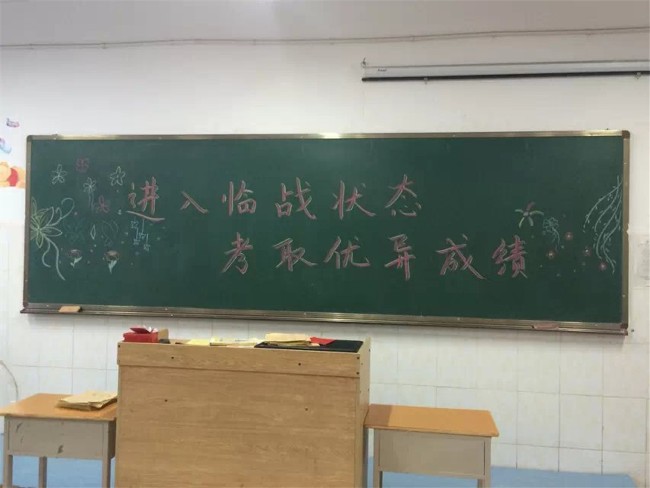 进入临战状态
考取优异成绩